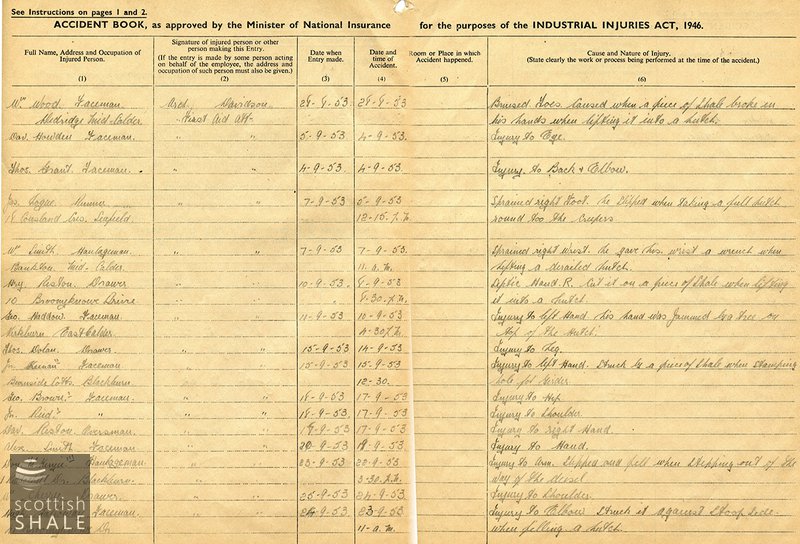 See Instructions on pages 1 and 2.
ACCIDENT BOOK, as approved by the Minister of National Insurance for the purposes of the INDUSTRIAL INJURIES ACT, 1946.
Full Name, Address and Occupation of Injured Person. (1)
Signature of injured person or other person making this Entry. (If the entry is made by some person acting on behalf of the employee, the address and occupation of such person must also be given.) (2)
Date when Entry made. (3)
Date and time of Accident. (4)
Room or Place in which Accident happened. (5)
Cause and Nature of Injury. (State clearly the work or process being performed at the time of the accident.) (6)
Wm Wood Faceman Arcd Davidson 28-8-53 28-8-53 Bruised Toes. Caused when a piece of Shale broke in
Mid-Calder First Aid Att. his hands when lifting it into a hutch.
Dav. Howden Faceman 5-9-53 4-9-53 Injury to Eye.
Thos. Grant Faceman 4-9-53 4-9-53 Injury to Back & Elbow.
Jas. Miner 7-9-53 5-9-53 Sprained right Foot. He slipped when taking a full hutch
18 Cousland Cres. Seafield 12-15 round too the
Wm Smith Haulageman 7-9-53 7-9-53 Sprained right wrist. He gave his wrist a wrench when
Bankton Mid-Calder 11-a.m. lifting a derailed hutch.
Hry. Riston Drawer 10-9-53 Septic Hand R. Cut it on a piece of Shale when lifting
10 Broomyknowe Drive 8-30 it into a hutch.
Geo. Haddow Faceman 11-9-53 10-9-53 Injury to left Hand his hand was jammed by a tree on
East Calder 4-30 top of the hutch.
Thos. Dolan Drawer 15-9-53 14-9-53 Injury to Leg
Jn. Faceman 15-9-53 15-9-53 Injury to left Hand. Struck by a piece of Shale when stamping
Burnside Cotts. Blackburn 12-30. hole for Girder.
Geo. Brown Faceman 18-9-53 17-9-53 Injury to Hip
Jn. Reid " 18-9-53 17-9-53 Injury to Shoulder
Dav. Riston Oversman 17-9-53 Injury to right Hand.
Alex. Smith Faceman 18-9-53 Injury to Hand.
Haulageman 23-9-53 22-9-53 Injury to Arm. Slipped and fell when stepping out of the
Dr. Blackburn 3-30 way of the diesel
Drawer 25-9-53 24-9-53 Injury to Shoulder.
Faceman 24-9-53 23-9-53 Injury to Elbow Struck it against Stoop Side
Dr 11-a.m. when filling a hutch.
scottish
SHALE